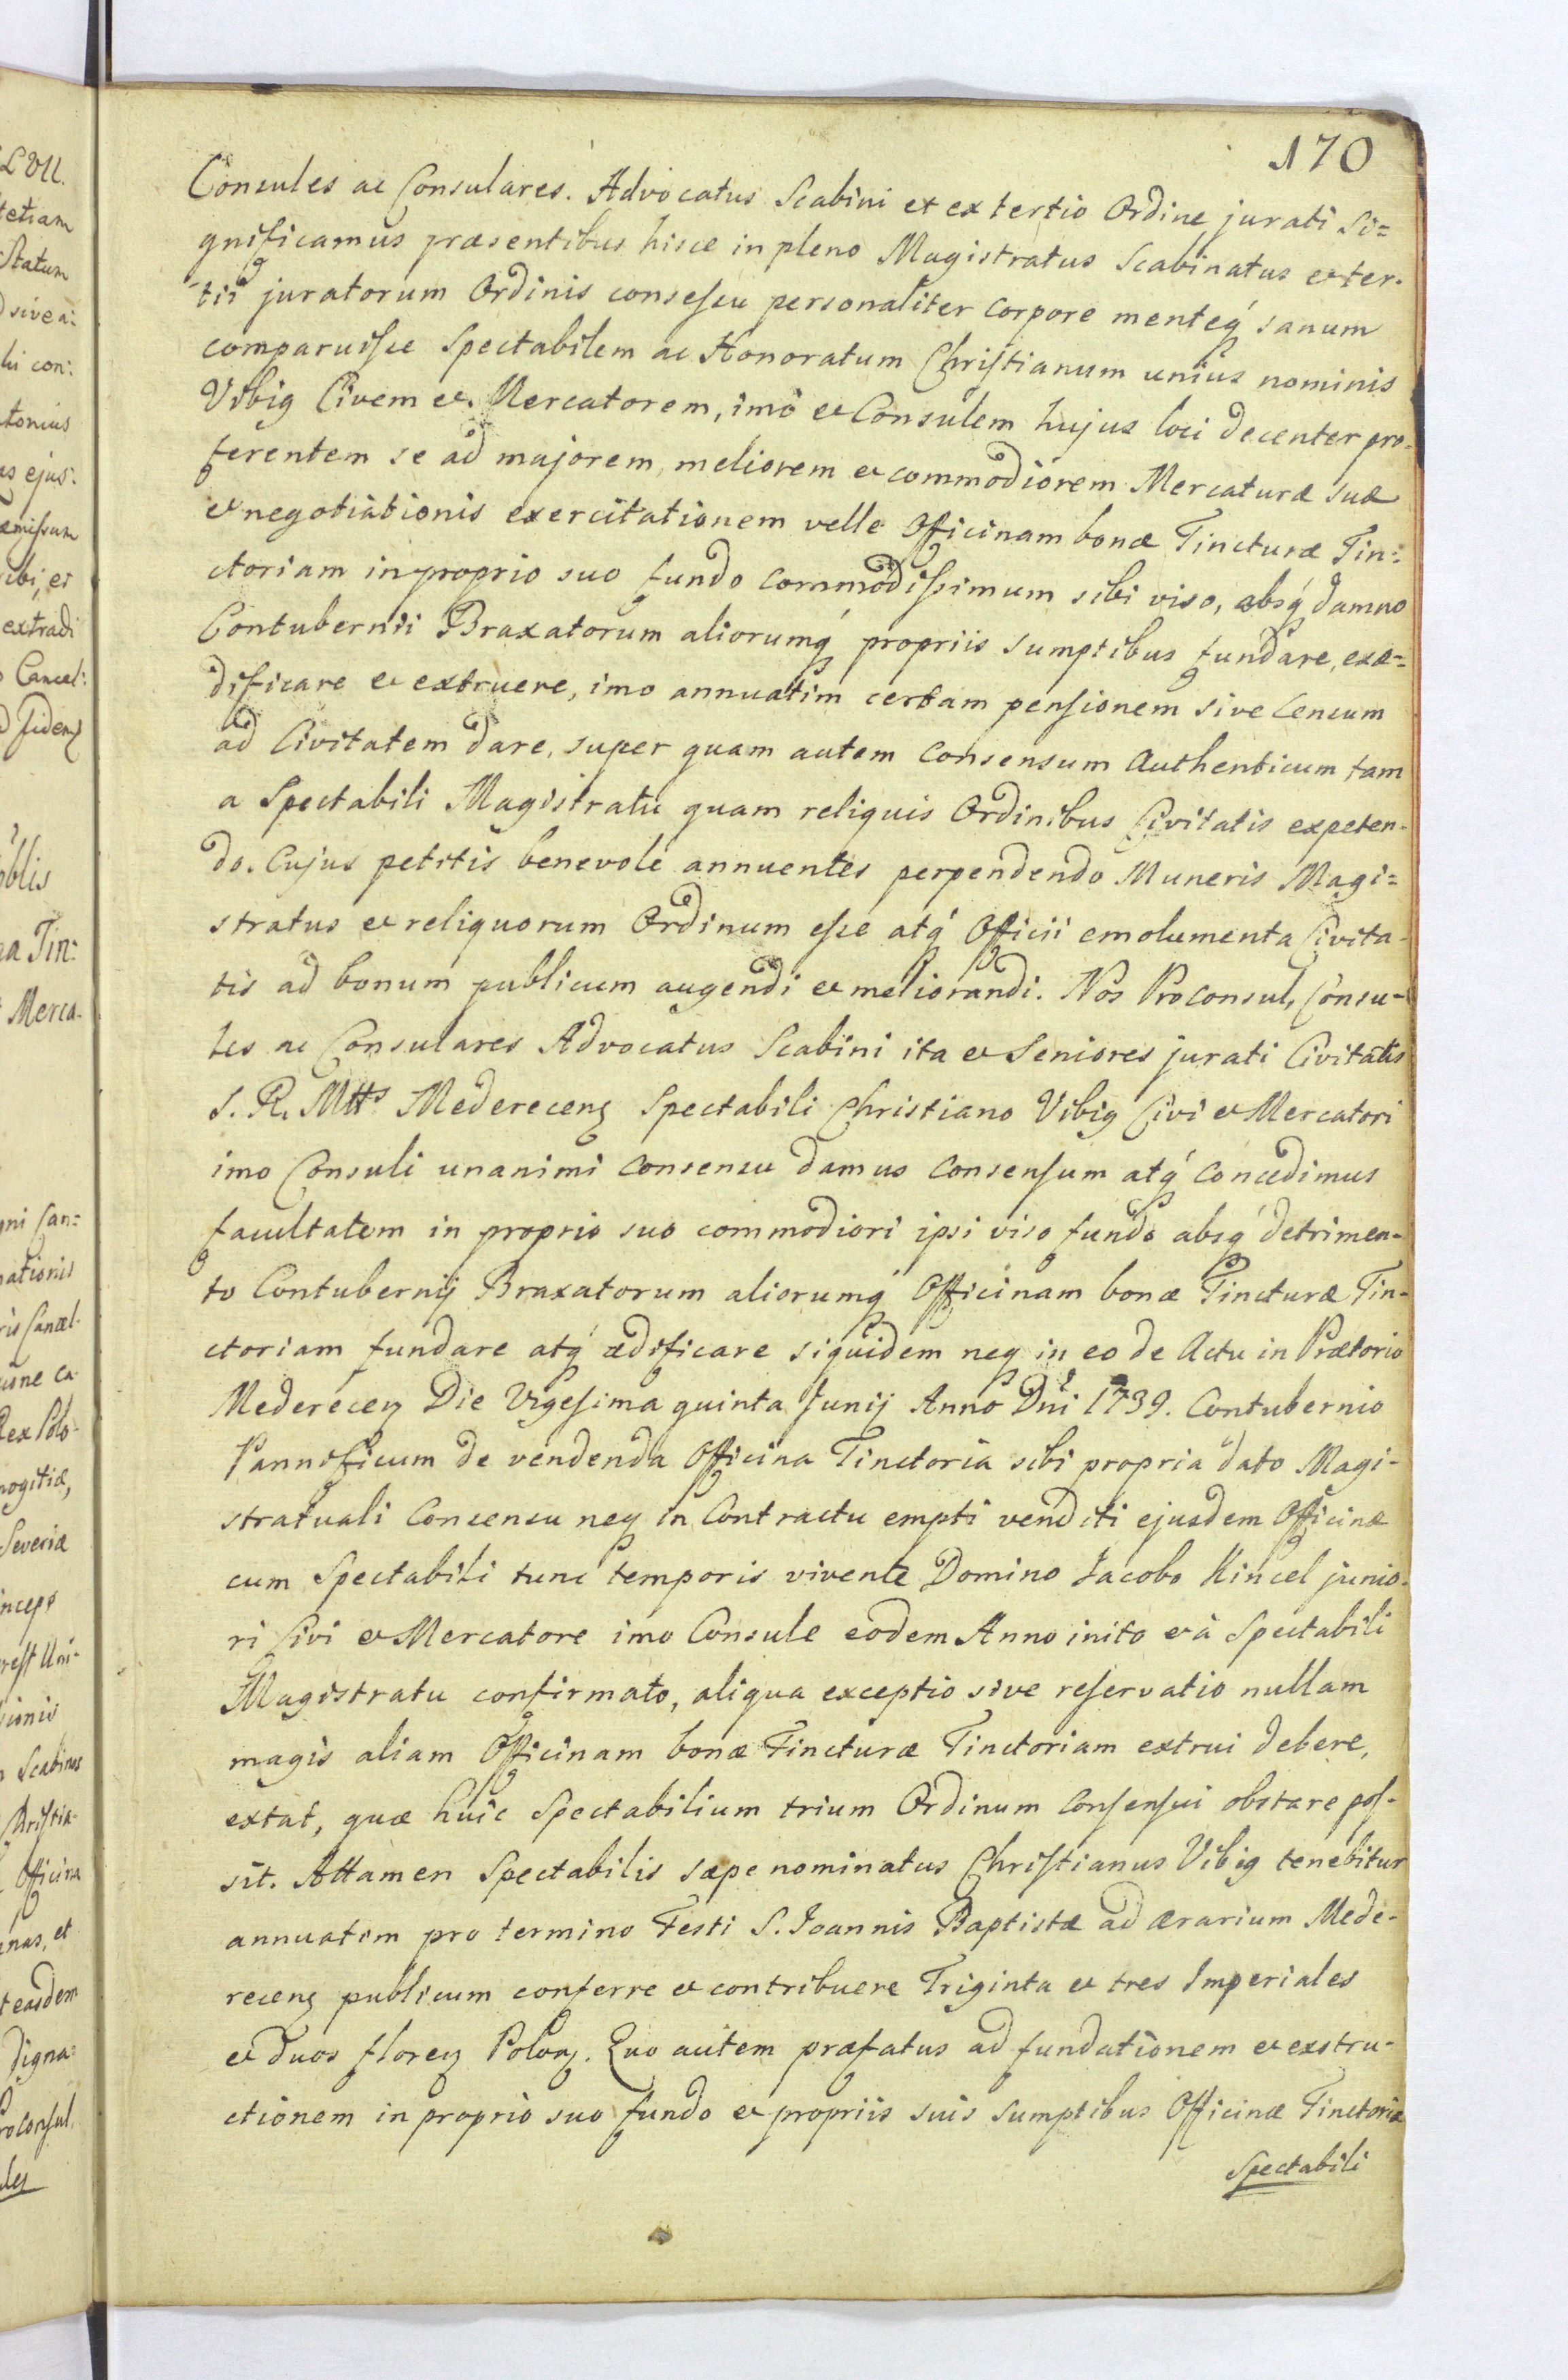 170
Consules ac Consulares. Advocatus Scabini et ex tertio Ordine jurati si=
gnificamus præsentibus hisce in pleno Magistratus Scabinatus et ter-
tii juratorum Ordinis consessu personaliter corpore menteq́ sanum
comparuisse Spectabilem ac Honoratum Christianum unius nominis
Vibig Civem et Mercatorem, imò et Consulem hujus loci decenter pro-
ferentem se ad majorem, meliorem et commodiorem Mercaturæ suæ
et negotiationis exercitationem velle Officinam bonæ Tincturæ Tin=
ctoriam in proprio suo fundo commodissimum sibi viso, absq́ damno
Contubernii Braxatorum aliorumq́ propriis sumptibus fundare, exæ=
dificare et extruere, imo annuatim certam pensionem sive Censum
ad Civitatem dare, super quam autem Consensum Authenticum tam
a Spectabili Magistratu quam reliquis Ordinibus Civitatis expeten-
do. Cujus petitis benevole annuentes perpendendo Muneris Magi=
stratus et reliquorum Ordinum esse atq́ Officii emolumenta Civita-
tis ad bonum publicum augendi et meliorandi. Nos Proconsul, Consu-
les ac Consulares Advocatus Scabini ita et Seniores jurati Civitatis
S. R. Mtts Medereceng Spectabili Christiano Vibig Civi et Mercatori
imo Consuli unanimi consensu damus Consensum atq́ Concedimus
facultatem in proprio suo commodiori ipsi viso fundo absq́ detrimen-
to Contubernij Braxatorum aliorumq́ Officinam bonæ Tincturæ Tin-
ctoriam fundare atq́ ædificare siquidem neq in eo de Actu in Prætorio
Mederecen Die Vigesima quinta Junij Anno Dni 1739. Contubernio
Pannificum de vendenda Officina Tinctoria sibi propria dato Magi-
stratuali Consensu neq in Contractu empti venditi ejusdem Officinæ
cum Spectabili tunc temporis vivente Domino Jacobo Kincel junio-
ri Civi et Mercatore imo Consule eodem Anno inito et à Spectabili
Magistratu confirmato, aliqua exceptio sive reservatio nullam
magis aliam Officinam bonæ Tincturæ Tinctoriam extrui debere,
extat, quæ huic Spectabilium trium Ordinum Consensui obstare pos-
sit. Attamen Spectabilis sæpe nominatus Christianus Vibig tenebitur
annuatim pro termino Festi S. Joannis Baptistæ ad ærarium Mede-
receng publicum conferre et contribuere Triginta et tres Imperiales
et duos floren Polon. Quo autem præfatus ad fundationem et exstru-
ctionem in proprio suo fundo et propriis suis sumptibus Officinæ Tinctoriæ
Spectabili